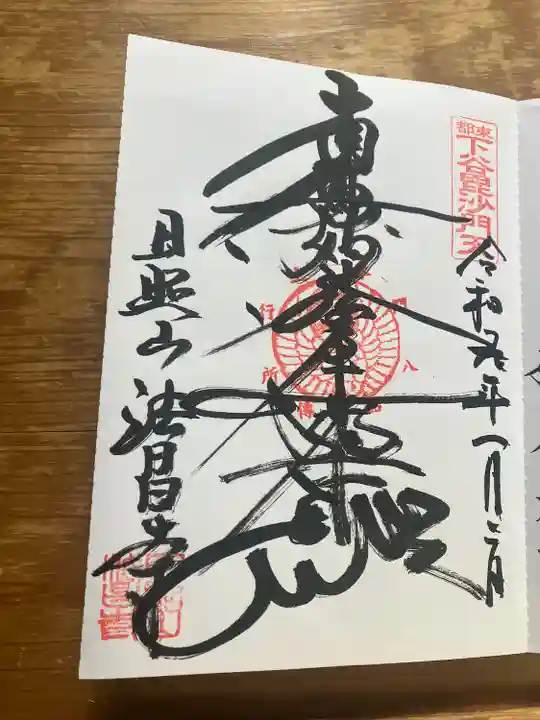 東都
下谷毘沙門天
令和五年一月二日
南無妙法蓮華経
日照山法昌寺